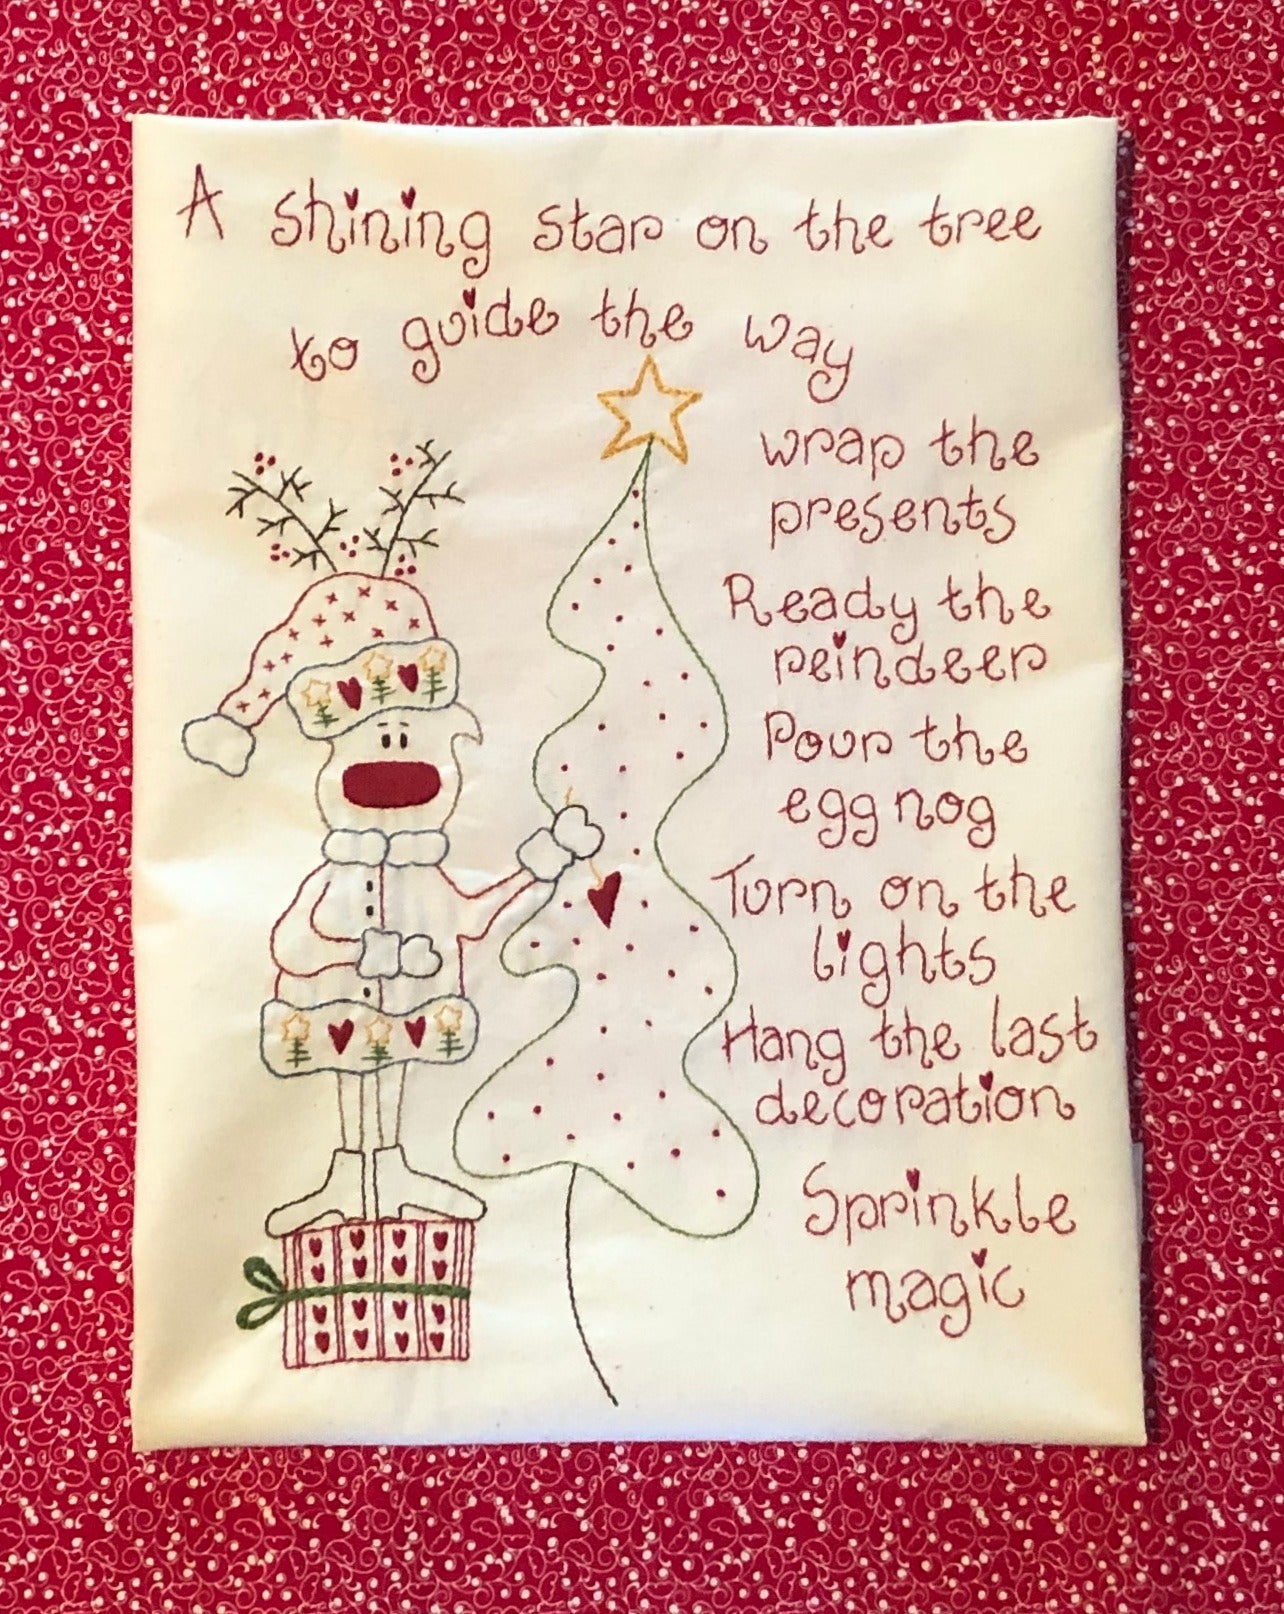 A shining star on the tree
to guide the way
wrap the
presents
Ready the
reindeer
Pour the
egg nog
Turn on the
lights
Hang the last
decoration
Sprinkle
magic